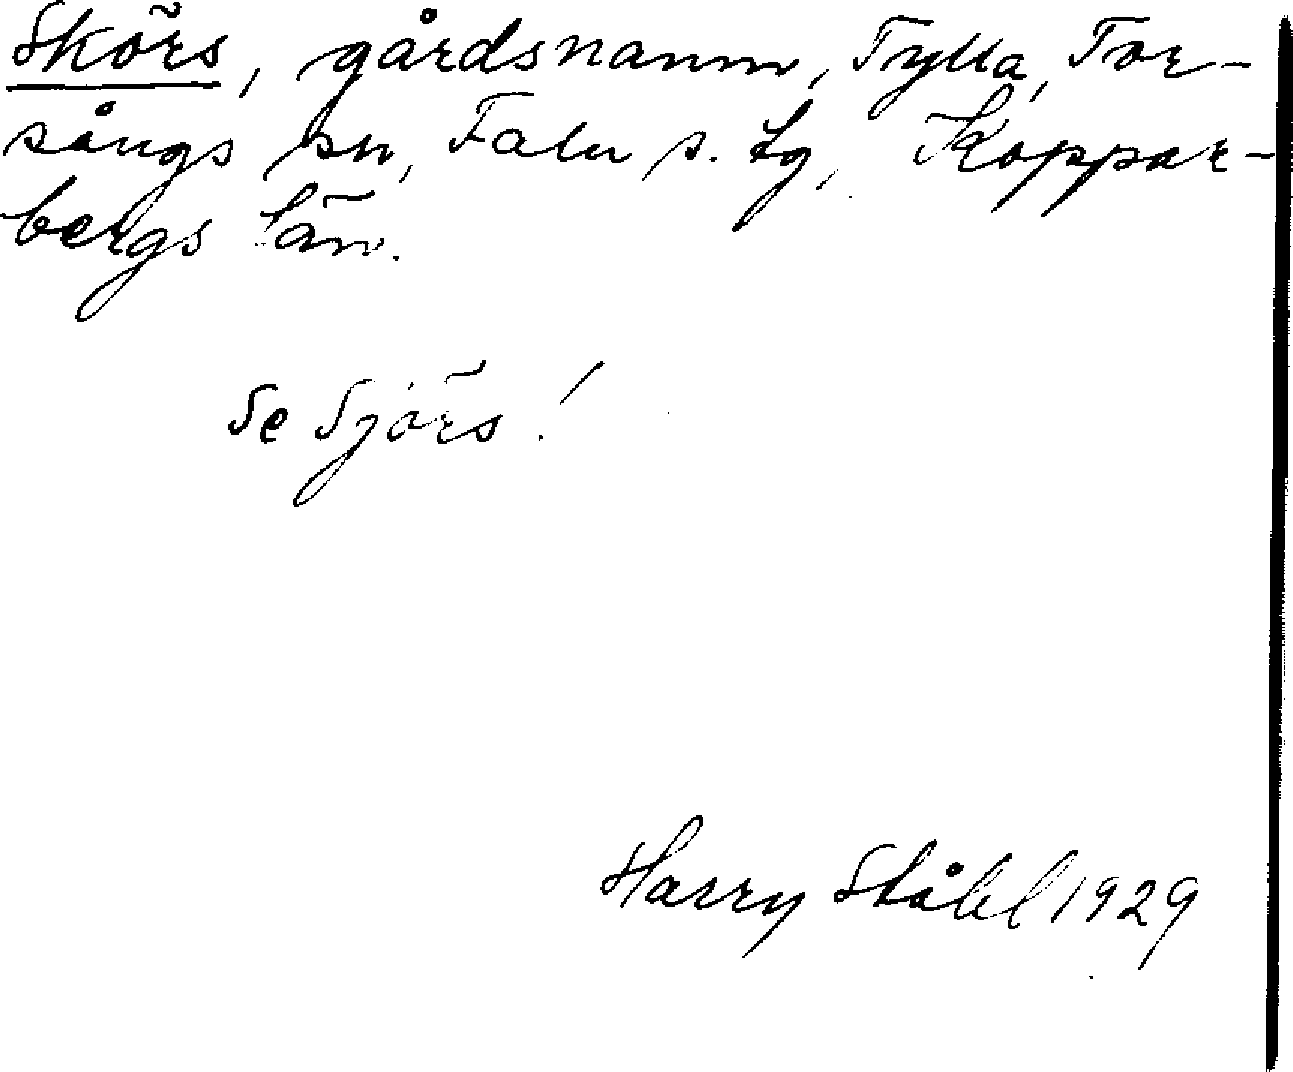 Skörs, gårdsnamn, Tylla, Tor-
sångs sn, Falu s. tg, Koppar-
bergs län.
Se Sjörs!
Harry Ståhl 1929